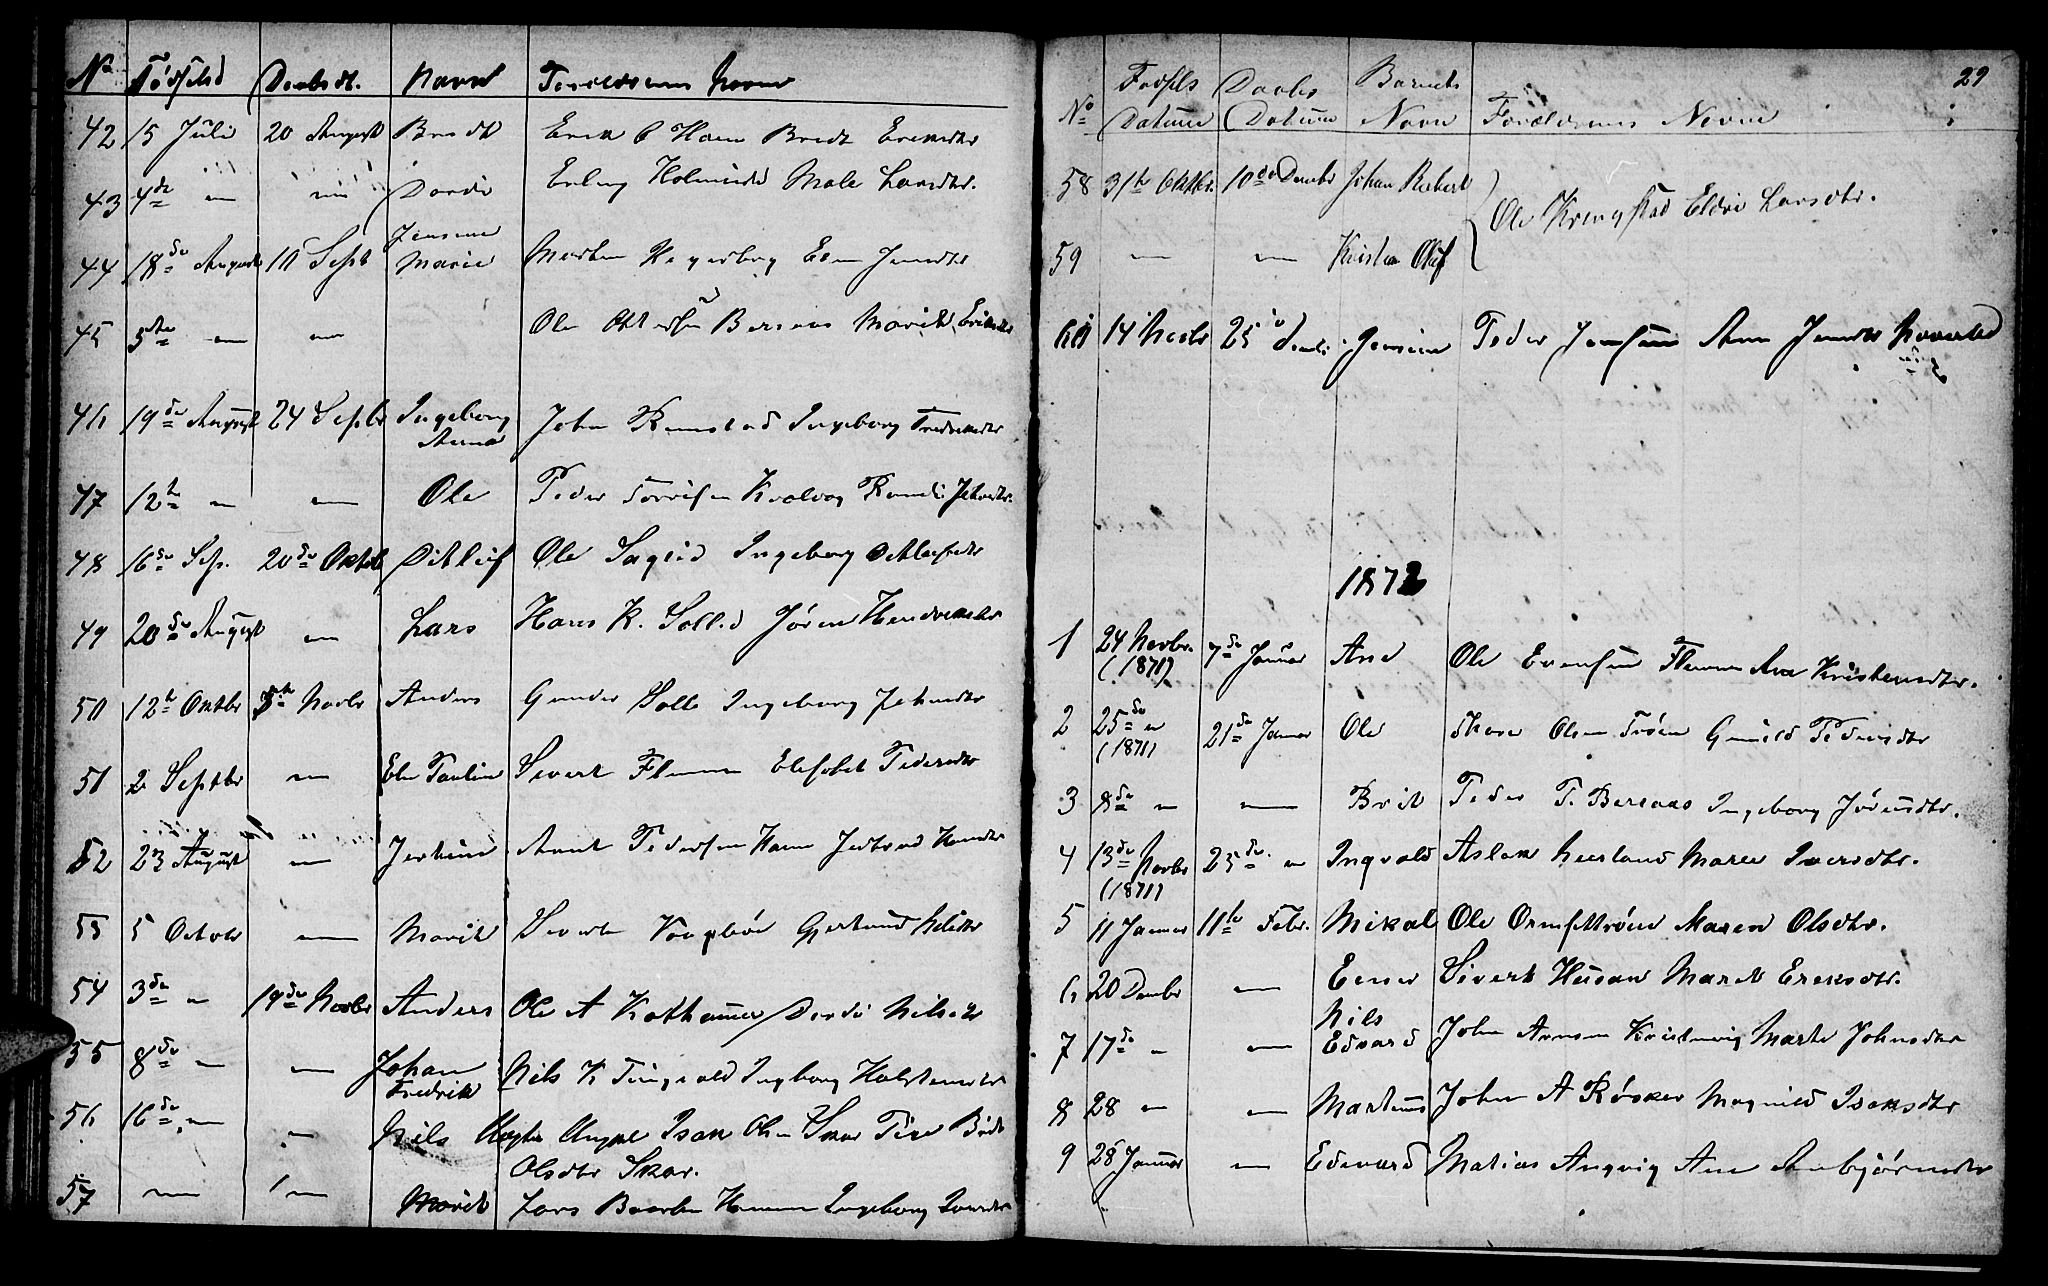 No Fødselsd Daabsd. Navn Forældrenes Navne
42 15 Juli 20 August Eredt Erik O Hoem Bredt Eriksdtr
43 4de — — Dordi Erling Holmeide Male Larsdtr.
44 18de August 10 Sept Jensine Marie Morten Hegerberg Elen Jensdtr
45 5te — — Ole Bersaas Marit Eriksdtr
46 19de August 24 Septbr Ingeborg Anna John Ramstad Ingeborg Fredriksdtr
47 12te — — Ole Peder Kvalvog Randi Johnsdtr.
48 16de Sep. 20de Oktob Ditlef Ole Ingeborg Detlefsdtr
49 20de August — Lars Hans K. Sollid Jøren Hendriksdtr
50 12te Oktbr Novbr Anders Gunder Solli Ingeborg Johnsdtr
51 2 Septbr — Elen Paulin Sivert Flemmen Elesabet Pedersdtr
52 23 August — Arnt Pedersen Hoem
53 5 Octobr — Marit Sivert Gjertrud Nilsdtr
54 3de — 19de Novbr Anders Ole A Kathammer Dordi Nilsdtr
55 8de — — Johan Fredrik Nils K Tingvold Ingborg Holstensdtr
56 16de — — Nils Ungkl Isak Olsen Skar Pige Brit
Olsdtr Skar.
57 — — Marit Lars Ingeborg Larsdtr
29
No Fødsels Datum Daabs Datum Barnets Navn Forældrenes Navne
58 31te Oktbr. 10de Decmbr Johan Robert Ole Kringstad Eldri Larsdtr.
59 — — Kristen Oluf
60 14 Novbr 25de Jensine Peder Jensen Ane Jensdtr
1872
1 24 Novbr. (1871) 7de Januar Ane Ole Evensen Flemmen Ane Kristensdtr.
2 25de — (1871) 21de Januar Ole Olsen Trøen Gunild Pedersdtr
3 8de — — Brit Peder P. Bersaas Ingeborg Jørensdtr.
4 13de Novbr (1871) 25de — Ingvald Aslak Neerland Maren Iversdtr.
5 11 Januar 11te Febr. Mikal Ole Ormsettrøen Maren Olsdtr.
6 20 Decmbr — Einer Sivert Husan Marit Eriksdtr.
7 17de — — Nils Edvard John Arnsen Kristenvig Marte Johnsdtr
8 28 — — Martinus John A Røsker Magnild Isaksdtr
9 28 Januar — Edevard Matias Angvig Ane Anbjørnsdtr